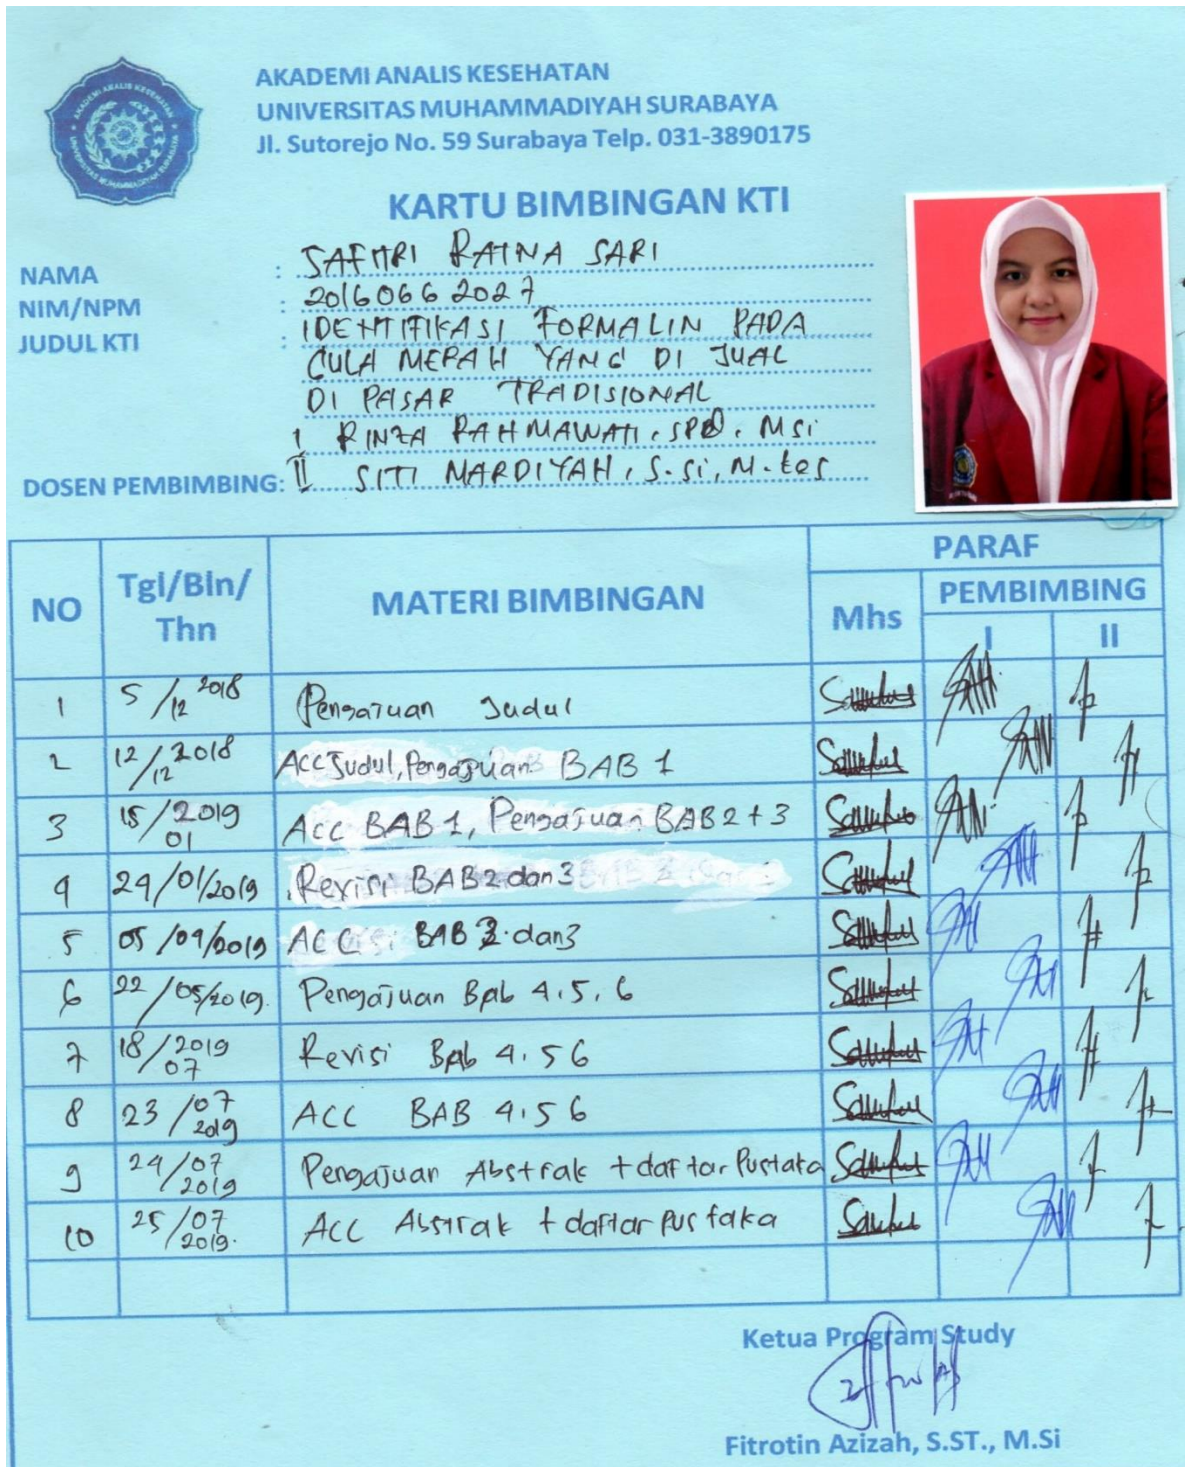 AKADEMI ANALIS KESEHATAN
UNIVERSITAS MUHAMMADIYAH SURABAYA
Jl. Sutorejo No. 59 Surabaya Telp. 031-3890175
KARTU BIMBINGAN KTI
NAMA : SAFITRI RATNA SARI
NIM/NPM : 20160662027
JUDUL KTI : IDENTIFIKASI FORMALIN PADA
GULA MERAH YANG DI JUAL
DI PASAR TRADISIONAL
I RINZA RAHMAWATI, SPD, MSi
DOSEN PEMBIMBING: II SITI MARDIYAH, S.Si, M.kes
NO Tgl/Bln/Thn MATERI BIMBINGAN PARAF
Mhs PEMBIMBING
I II
1 5/12 2018 Pengajuan Judul
2 12/12 2018 Acc Judul, Pengajuan BAB 1
3 15/01 2019 Acc BAB 1, Pengajuan BAB 2 + 3
4 24/01/2019 Revisi BAB 2 dan 3
5 05/04/2019 ACC BAB 2 dan 3
6 22/05/2019. Pengajuan Bab 4.5.6
7 18/07 2019 Revisi Bab 4.5 6
8 23/07 2019 ACC BAB 4.5 6
9 24/07 2019 Pengajuan Abstrak + daftar Pustaka
10 25/07 2019. ACC Abstrak + daftar pustaka
Ketua Program Study
Fitrotin Azizah, S.ST., M.Si